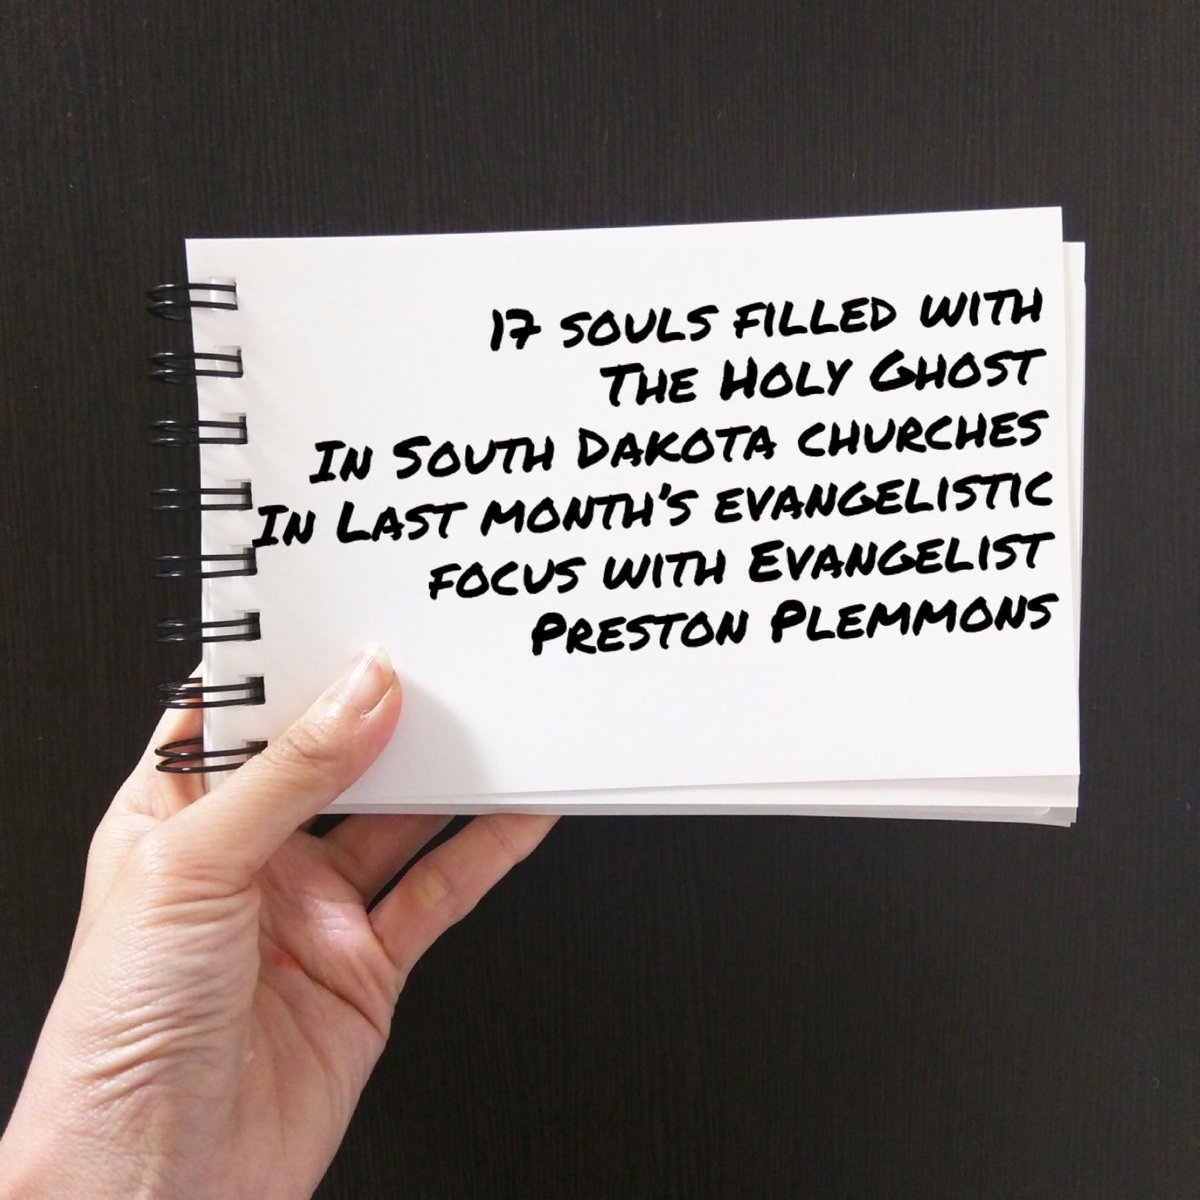 17 souls filled with
The Holy Ghost
In South Dakota churches
In Last month's evangelistic
focus with Evangelist
Preston Plemmons